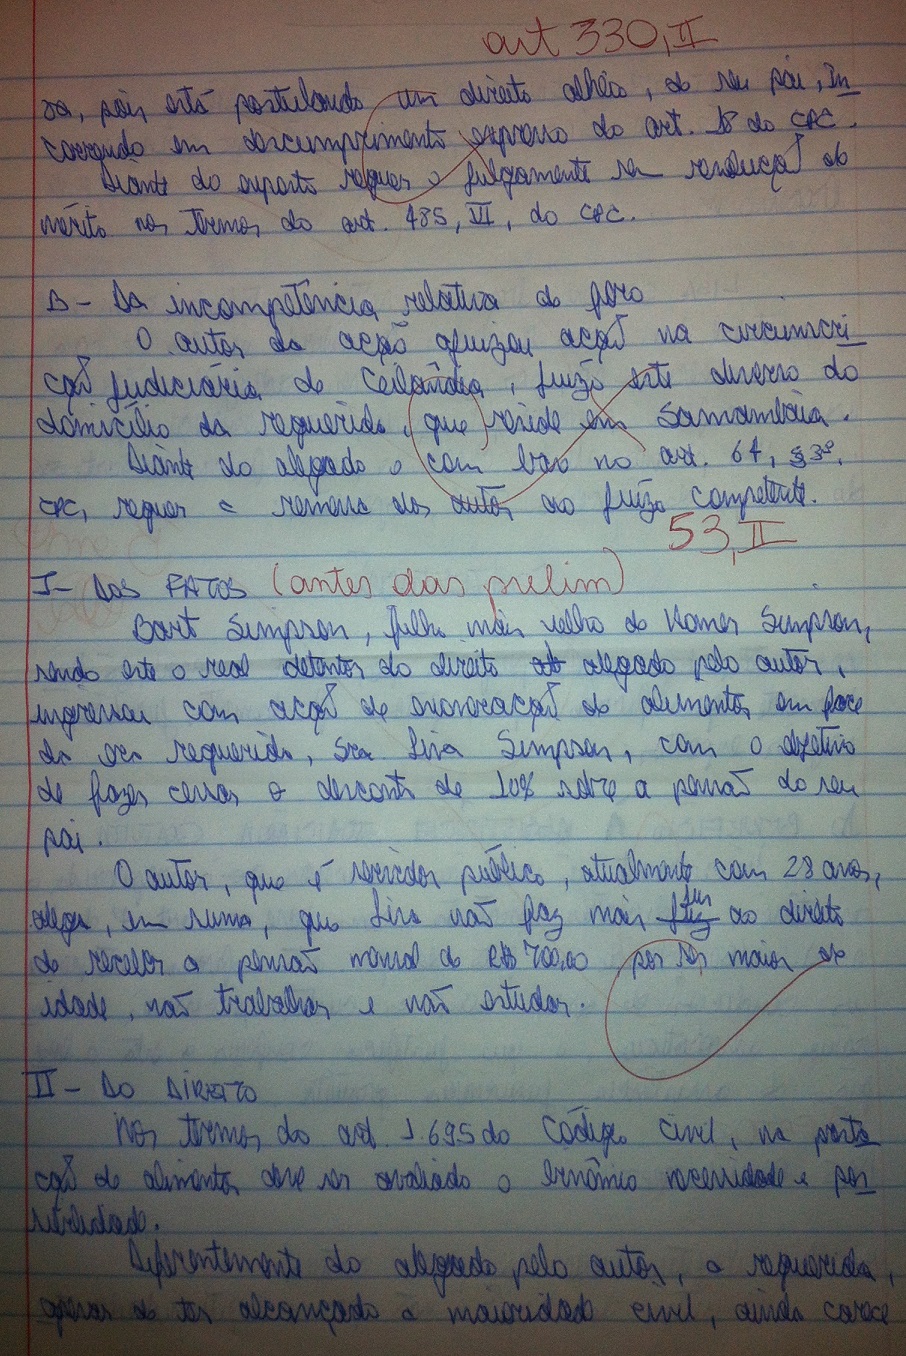 art 330, II
sa, pois está postulando um direito alheio, do seu pai, in
correndo em descumprimento expresso do art. 18 do CPC.
Diante do exposto requer o julgamento sem resolução do
mérito nos termos do art. 485, VI, do CPC.
B - Da incompetência relativa do foro
O autor da ação ajuizou ação na circunscri
ção judiciária de Ceilândia, juízo este diverso do
domicílio da requerida, que reside em Samambaia.
Diante do alegado e com base no art. 64, § 3º,
CPC, requer a remessa dos autos ao juízo competente.
53, II
I - DOS FATOS (antes das prelim)
Bart Simpson, filho mais velho de Homer Simpson,
sendo este o real detentor do direito alegado pelo autor,
ingressou com ação de exoneração de alimentos em face
da ora requerida, Sra Lisa Simpson, com o objetivo
de fazer cessar o desconto de 10% sobre a pensão do seu
pai.
O autor, que é servidor público, atualmente com 28 anos,
alega, em suma, que Lisa não faz mais jus ao direito
de receber a pensão mensal de R$ 700,00 por ser maior de
idade, não trabalhar e não estudar.
II - DO DIREITO
Nos termos do art. 1.695 do Código Civil, na presta
ção de alimentos deve ser avaliado o binômio necessidade e pos
sibilidade.
Diferentemente do alegado pelo autor, a requerida,
apesar de ter alcançado a maioridade civil, ainda carece